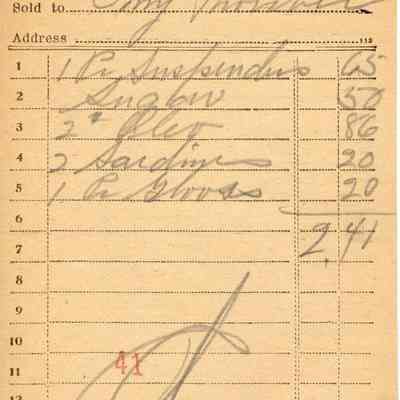 Sold to
Address 112
1 1 Pr Suspenders 65
2 50
3 2# Oleo 86
4 2 Sardines 20
5 1 Pr Gloves 20
6
7 2.41
8
9
10
11 41
12